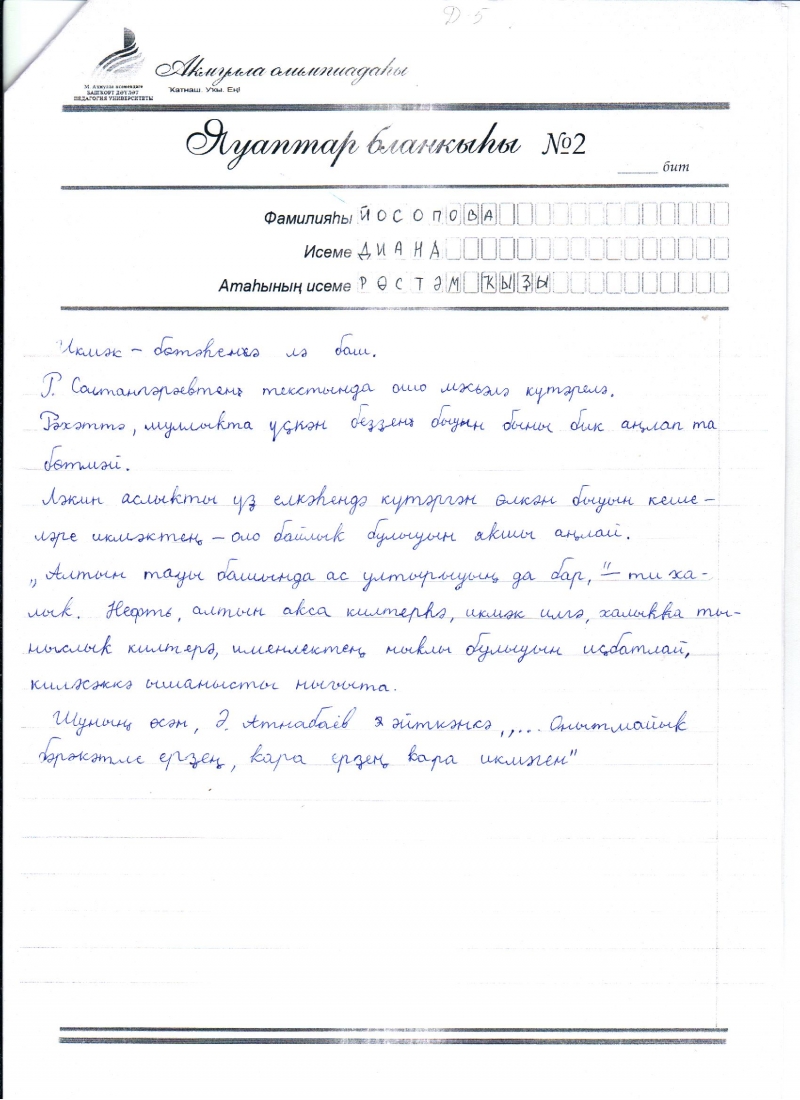 Д-5
Акмулла олимпиадаһы
Ҡатнаш. Уҡы. Еңі
М. Аҡмулла исемендәге
БАШҠОРТ ДӘҮЛӘТ
ПЕДАГОГИЯ УНИВЕРСИТЕТЫ
Яуаптар бланкыһы №2
бит
Фамилияһы ЙОСОПОВА
Исеме ДИАНА
Атаһының исеме РӨСТӘМ ҠЫҘЫ
Икмәк – бөтәһенә лә баш.
Р. Солтангәрәевтең текстында ошо мәсьәлә күтәрелә.
Рәхәттә, муллыкта үҫкән беҙҙең быуын быны бик аңлап та
бөтмәй.
Ләкин аслыҡты үҙ елкәһендә күтәргән өлкән быуын кеше-
ләре икмәктең – оло байлыҡ булыуын яҡшы аңлай.
„Алтын тауы башында ас ултырыуың да бар," – ти ха-
лыҡ. Нефть, алтын аҡса килтерһә, икмәк илгә, халыҡҡа ты-
ныслыҡ килтерә, именлектең ныҡлы булыуын иҫбатлай,
киләсәккә ышанысты нығыта.
Шуның өсөн, Ә. Атнабаев әйткәнсә „... Онытмайыҡ
бәрәкәтле ерҙең, ҡара ерҙең ҡара икмәген"